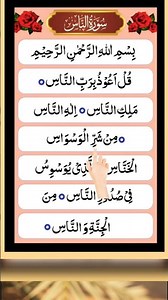 سُوْرَةُ النَّاسِ
بِسْمِ اللّٰهِ الرَّحْمٰنِ الرَّحِيْمِ
قُلْ اَعُوْذُ بِرَبِّ النَّاسِ
مَلِكِ النَّاسِ اِلٰهِ النَّاسِ
مِنْ شَرِّ الْوَسْوَاسِ
الْخَنَّاسِ الَّذِیْ يُوَسْوِسُ
فِیْ صُدُوْرِ النَّاسِ مِنَ
الْجِنَّةِ وَ النَّاسِ